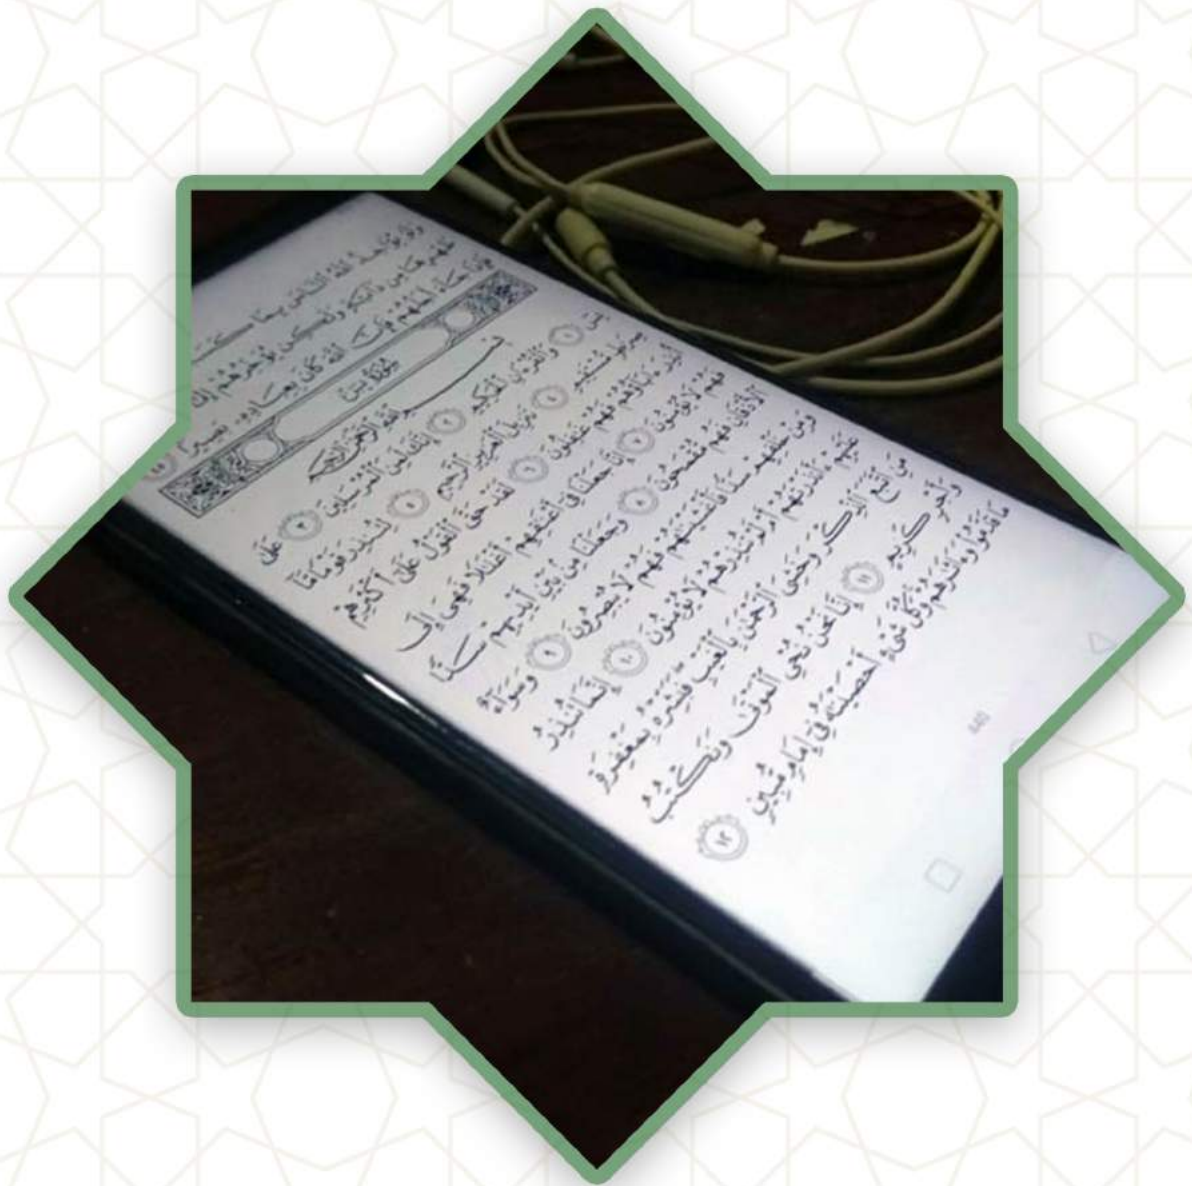 وَلَوْ يُؤَاخِذُ ٱللَّهُ ٱلنَّاسَ بِمَا
ظَهْرِهَا مِن دَآبَّةٍ وَلَٰكِن يُؤَخِّرُهُمْ إِلَىٰٓ
جَآءَ أَجَلُهُمْ فَإِنَّ ٱللَّهَ كَانَ بِعِبَادِهِۦ بَصِيرًۢا ٤٥
سُورَةُ يسٓ
بِسْمِ ٱللَّهِ ٱلرَّحْمَٰنِ ٱلرَّحِيمِ
يسٓ ١ وَٱلْقُرْءَانِ ٱلْحَكِيمِ ٢ إِنَّكَ لَمِنَ ٱلْمُرْسَلِينَ ٣ عَلَىٰ
صِرَٰطٍ مُّسْتَقِيمٍ ٤ تَنزِيلَ ٱلْعَزِيزِ ٱلرَّحِيمِ ٥ لِتُنذِرَ قَوْمًا مَّآ
أُنذِرَ ءَابَآؤُهُمْ فَهُمْ غَٰفِلُونَ ٦ لَقَدْ حَقَّ ٱلْقَوْلُ عَلَىٰٓ أَكْثَرِهِمْ
فَهُمْ لَا يُؤْمِنُونَ ٧ إِنَّا جَعَلْنَا فِىٓ أَعْنَٰقِهِمْ أَغْلَٰلًا فَهِىَ إِلَى
ٱلْأَذْقَانِ فَهُم مُّقْمَحُونَ ٨ وَجَعَلْنَا مِنۢ بَيْنِ أَيْدِيهِمْ سَدًّا
وَمِنْ خَلْفِهِمْ سَدًّا فَأَغْشَيْنَٰهُمْ فَهُمْ لَا يُبْصِرُونَ ٩ وَسَوَآءٌ
عَلَيْهِمْ ءَأَنذَرْتَهُمْ أَمْ لَمْ تُنذِرْهُمْ لَا يُؤْمِنُونَ ١٠ إِنَّمَا تُنذِرُ
مَنِ ٱتَّبَعَ ٱلذِّكْرَ وَخَشِىَ ٱلرَّحْمَٰنَ بِٱلْغَيْبِ فَبَشِّرْهُ بِمَغْفِرَةٍ
وَأَجْرٍ كَرِيمٍ ١١ إِنَّا نَحْنُ نُحْىِ ٱلْمَوْتَىٰ وَنَكْتُبُ
مَا قَدَّمُوا۟ وَءَاثَٰرَهُمْ وَكُلَّ شَىْءٍ أَحْصَيْنَٰهُ فِىٓ إِمَامٍ مُّبِينٍ ١٢
440